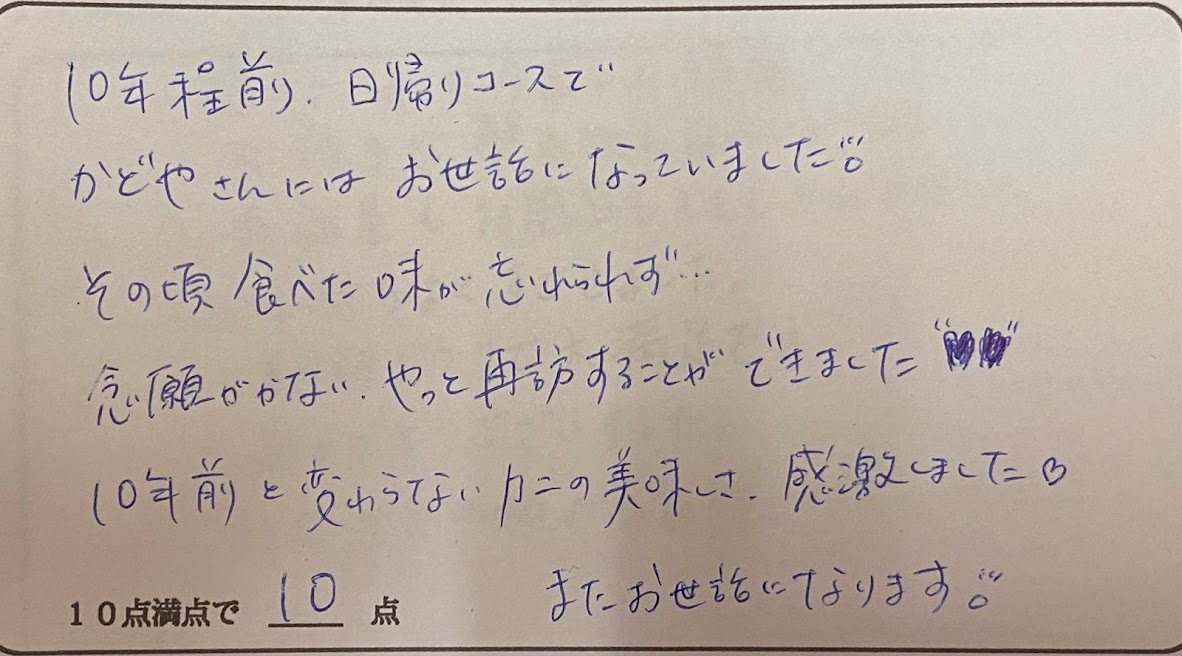 10年程前、日帰りコースで
かどやさんには お世話になっていました
その頃 食べた味が 忘れられず…
念願がかない、やっと再訪することができました
10年前と変わらないカニの美味しさ、感激しました♡
10点満点で 10 点
またお世話になります